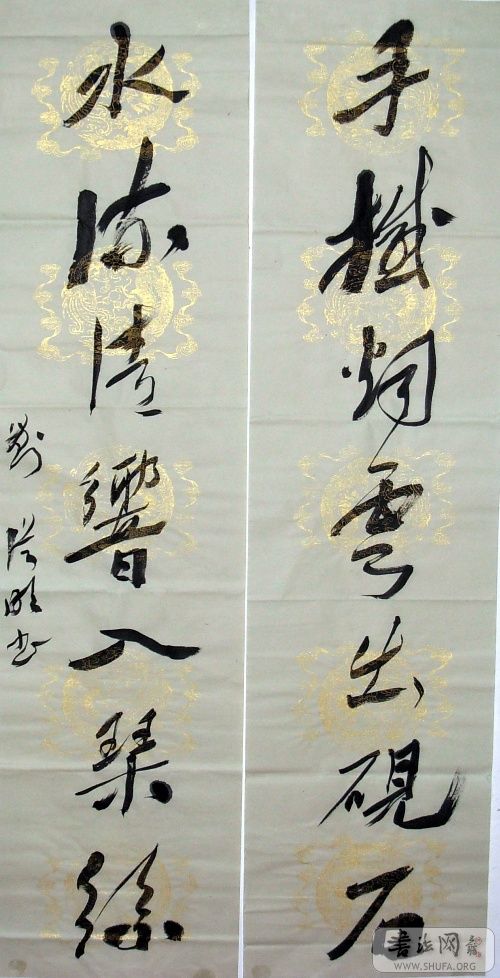 手烟雲出硯石
水流清響入琴絲
劉
书
書法网
WWW.SHUFA.ORG